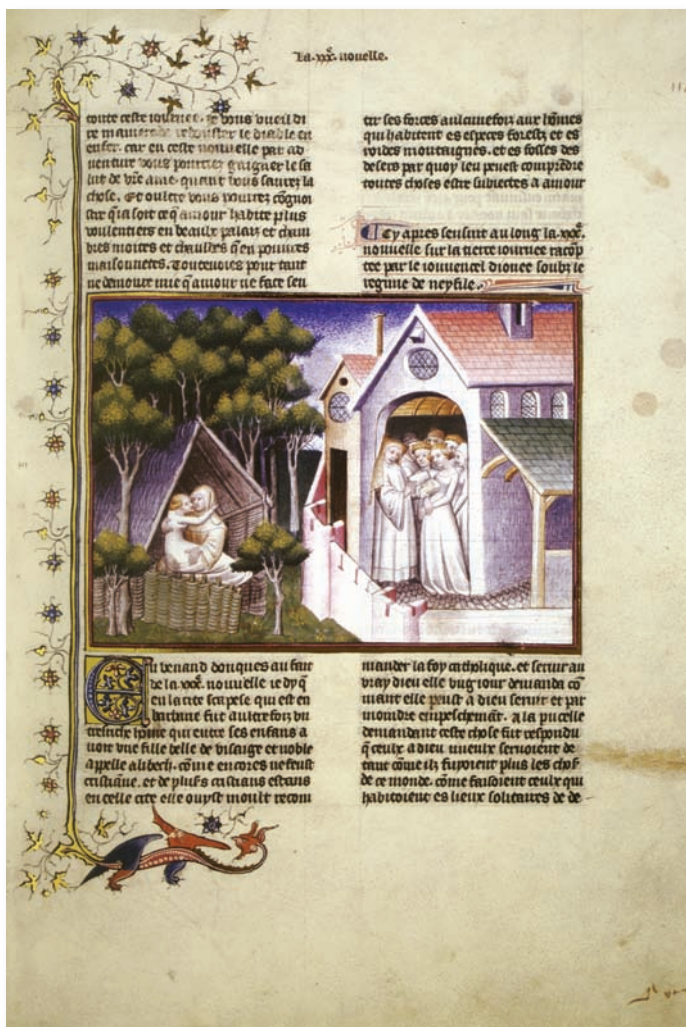 La .xxx.e nouelle.
toute ceste iournee. Je vous vueil di
re maniere de rebouster le diable en
enfer. car en ceste nouuelle par ad
uenture vous pourrez gaigner le sa
lut de vr̃e ame. quant vous saurez la
chose. Et oultre vous pourrez cõgnoi
stre q̃ ia soit ce q̃ amour habite plus
voulentiers en beaulx palais et cham
bres moites et chauldes q̃ en pouures
maisonnetes. Toutevoies pour tant
ne demoure mie q̃ amour ne face sen
tir ses forces aulcunefois aux hõmes
qui habitent es especes forestz et es
roides montaignes. et es fosses des
desers par quoy leu peuest comprẽdre
toutes choses estre subiectes a amour
Cy apres sensuit au long la .xxx.e
nouuelle sur la tierce iournee racõp
tee par le iouuencel dionee soubz le
regime de neyfile.
Eu venand donques au fait
de la .xxx.e nouuelle ie dy q̃
en la cite scapese qui est en
barbarie fut aultrefois vn
tresriche hõme qui entre ses enfans a
uoit vne fille belle de visaige et noble
appelle alibech. cõme encores ne feust
cristiãne. et de plus̃rs cristians estans
en celle cite elle ouyst moult recom
mander la foy catholique. et seruir au
vray dieu elle vng iour demanda cõ
mant elle peust a dieu seruir et par
moindre empeschemãt. A la pucelle
demandant ceste chose fut respondu
q̃ ceulx a dieu mieulx seruoient de
tant cõme ilz fuyoient plus les chos̃
de ce monde. cõme faisoient ceulx qui
habitoient es lieux solitaires de de